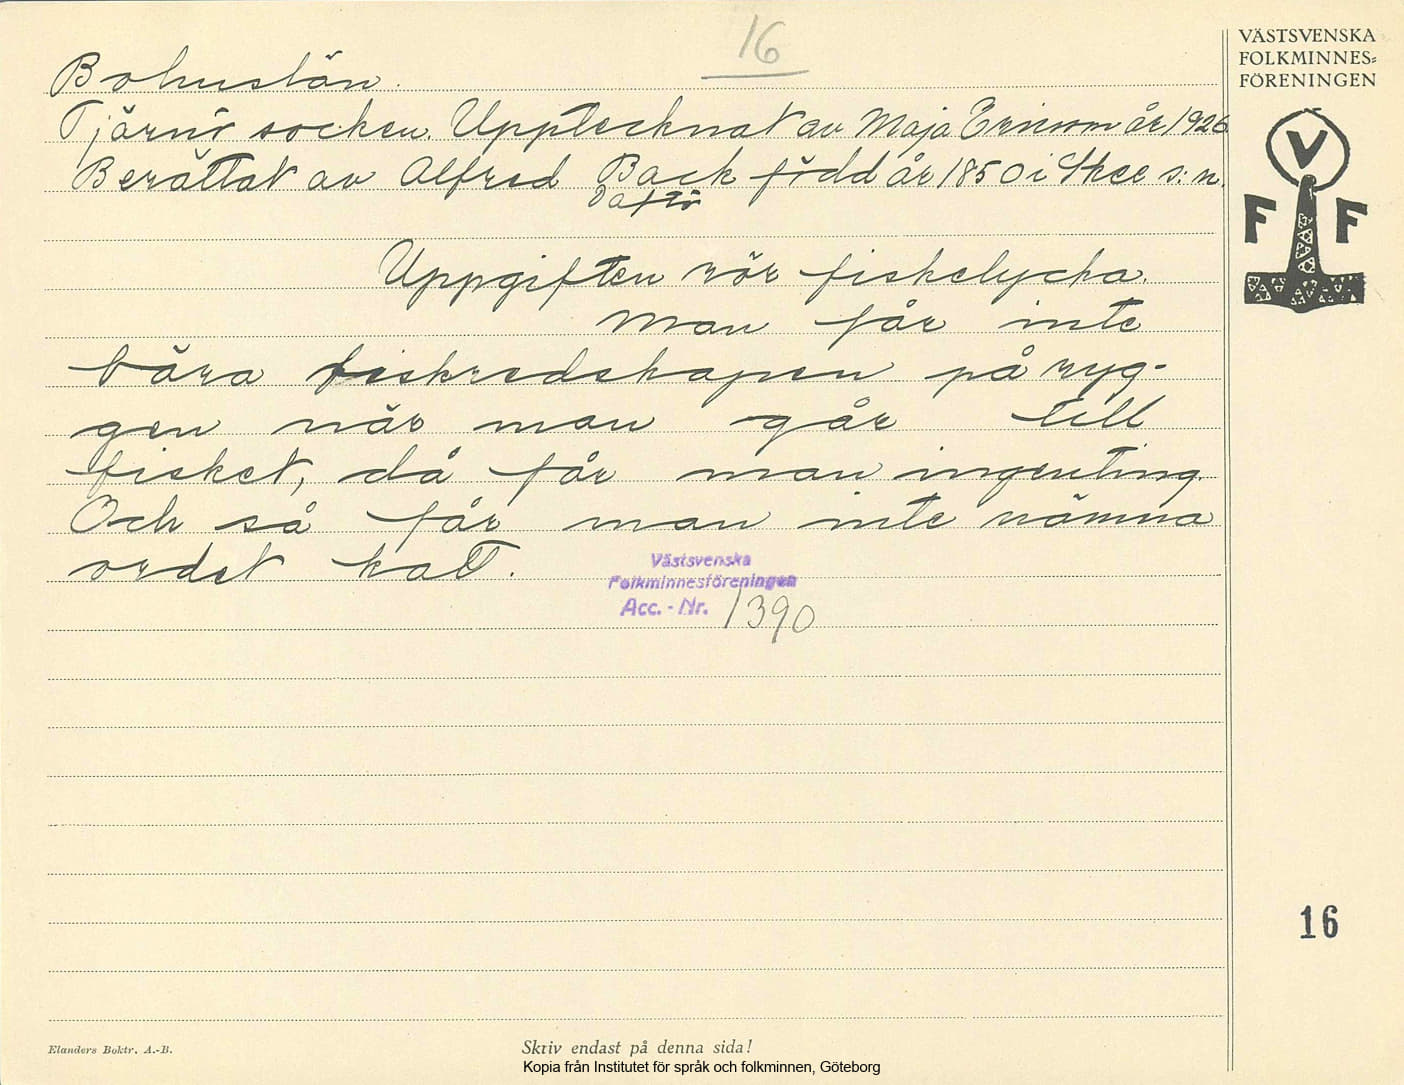 16
VÄSTSVENSKA
FOLKMINNES=
FÖRENINGEN
V
F F
Bohuslän.
Tjärnö socken. Upptecknat av Maja Ericson år 1926
Berättat av Alfred Back född år 1850 i Skee s:n.
Daftö
Uppgiften rör fiskelycka.
Man får inte
bära fiskredskapen på ryg-
gen när man går till
fisket, då får man ingenting.
Och så får man inte nämna
ordet katt.
Västsvenska
Folkminnesföreningen
Acc. - Nr. 1390
16
Elanders Boktr. A.-B.
Skriv endast på denna sida!
Kopia från Institutet för språk och folkminnen, Göteborg